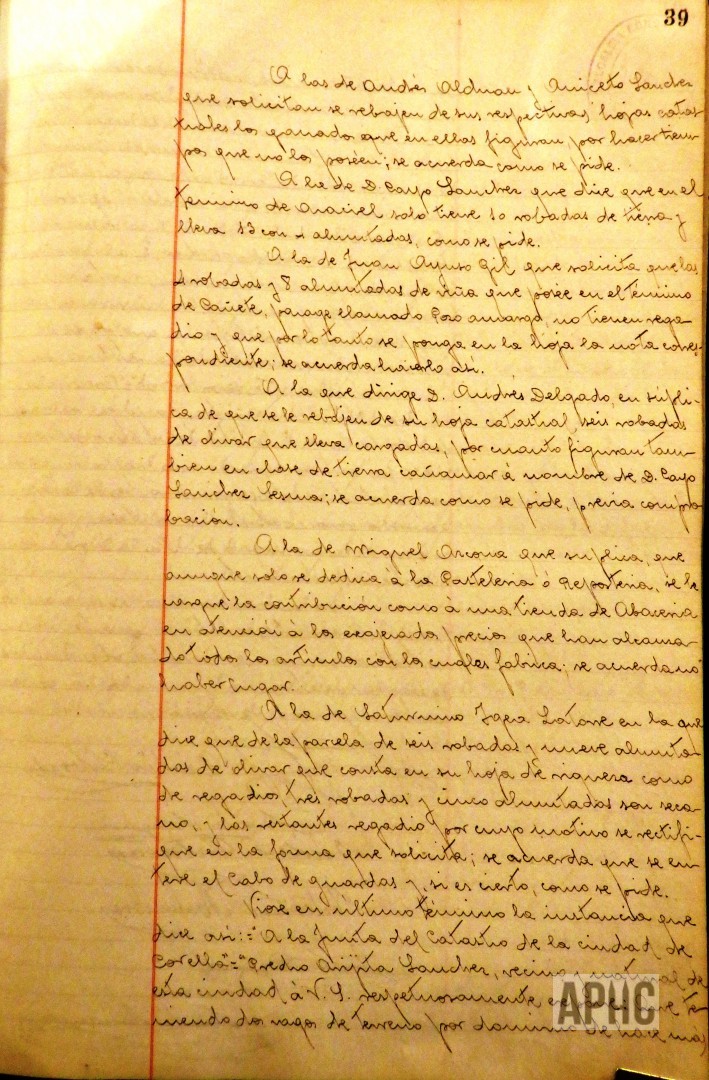 39
A las de Andrés Aldman y Aniceto Sanchez
que solicitan se rebajen de sus respectivas hojas catas-
trales los ganados que en ellas figuran por hacer tiem-
pos que no los poséen; se acuerda como se pide.
A la de D. Cayo Sanchez que dice que en el
término de Araciel solo tiene 10 robadas de tierra y
lleva 13 con almutadas, como se pide.
A la de Juan Ayuso Gil que solicita que las
4 robadas y 8 almutadas de viña que posée en el término
de Cañete, parage llamado Pozo amargo, no tienen rega-
dio y que por lo tanto se ponga en la hoja la nota corres-
pondiente; se acuerda hacerlo asi.
A la que dirige D. Andrés Delgado, en súpli-
ca de que se le rebajen de su hoja catastral, seis robadas
de olivar que lleva cargadas, por cuanto figuran tam-
bien en clase de tierra cañamar á nombre de D. Cayo
Sanchez Sesma; se acuerda como se pide, previa compro-
bación.
A la de Miguel Arcona que suplica, que
aunque solo se dedica á la Pastelería ó Repostería, se le
cargue la contribución como á una tienda de Abacería
en atención á los exajerados precios que han alcanza-
do todos los artículos con los cuales fabrica; se acuerda no
haber lugar.
A la de Saturnino Latorre en la que
dice que de la parcela de seis robadas y nueve almuta-
das de olivar que consta en su hoja de riqueza como
de regadio, tres robadas y cinco almutadas son seca-
no, y las restantes regadio por cuyo motivo se rectifi-
que en la forma que solicita; se acuerda que se en-
tere el Cabo de guardas y, si es cierto, como se pide.
Viose en último término la instancia que
dice asi:="A la Junta del Catastro de la ciudad de
Corella"="Pedro Sanchez, vecino y natural de
esta ciudad á V. S. respetuosamente expone: Que te-
niendo dos vagos de terreno por dominio de hace más
APHC